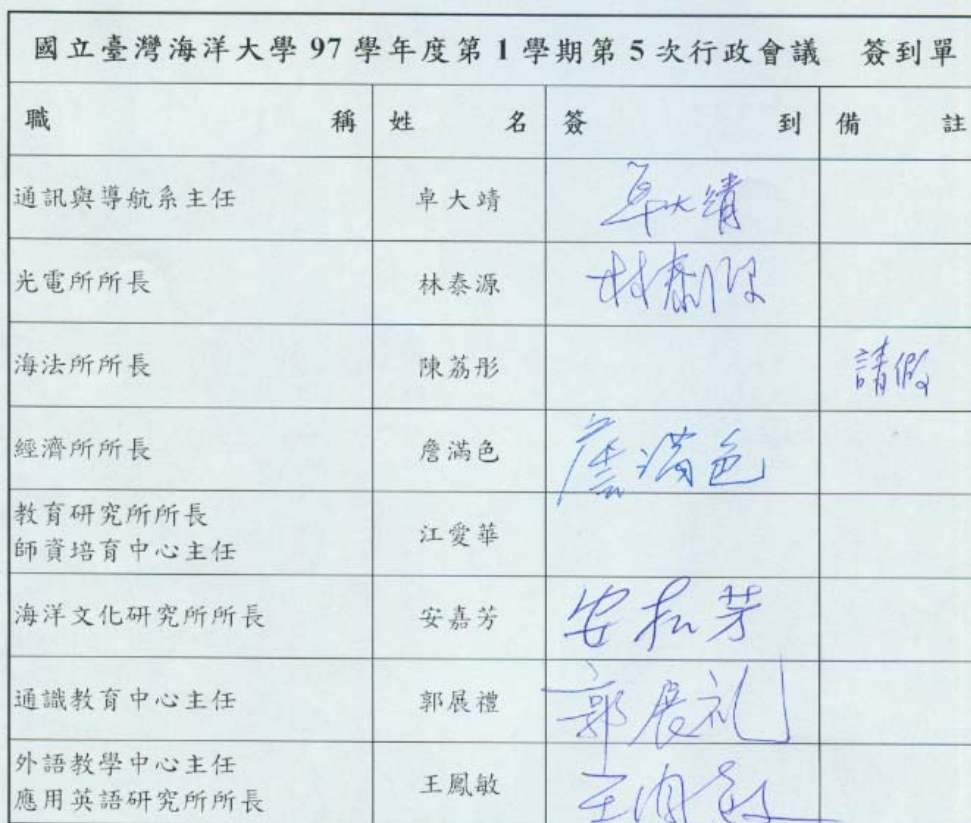 國立臺灣海洋大學 97 學年度第 1 學期第 5 次行政會議 簽到單
職稱 姓名 簽到 備註
通訊與導航系主任 卓大靖 卓大靖
光電所所長 林泰源 林泰源
海法所所長 陳荔彤 請假
經濟所所長 詹滿色 詹滿色
教育研究所所長
師資培育中心主任 江愛華
海洋文化研究所所長 安嘉芳
通識教育中心主任 郭展禮 郭展礼
外語教學中心主任
應用英語研究所所長 王鳳敏